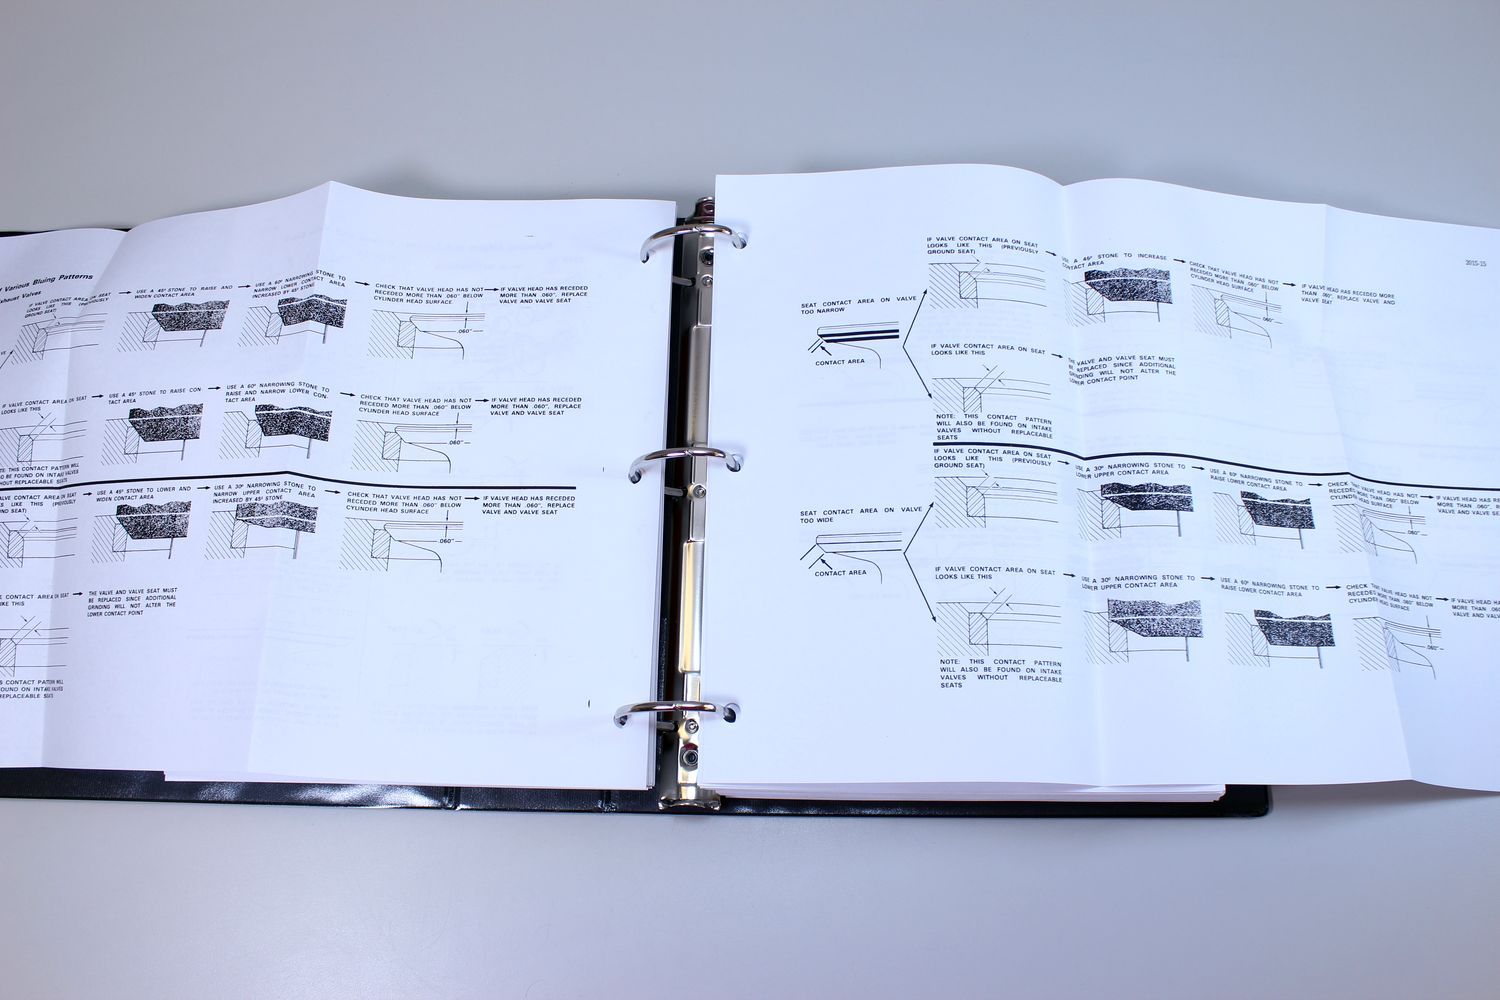 Various Bluing Patterns
Exhaust Valves
IF VALVE CONTACT AREA ON SEAT
LOOKS LIKE THIS (PREVIOUSLY
GROUND SEAT)
USE A 45º STONE TO RAISE AND
WIDEN CONTACT AREA
USE A 60º NARROWING STONE TO
NARROW LOWER CONTACT AREA
INCREASED BY 45º STONE
CHECK THAT VALVE HEAD HAS NOT
RECEDED MORE THAN .060" BELOW
CYLINDER HEAD SURFACE
IF VALVE HEAD HAS RECEDED
MORE THAN .060", REPLACE
VALVE AND VALVE SEAT
.060"
IF VALVE CONTACT AREA ON SEAT
LOOKS LIKE THIS
USE A 45º STONE TO RAISE CON
TACT AREA
USE A 60º NARROWING STONE TO
RAISE AND NARROW LOWER CON-
TACT AREA
CHECK THAT VALVE HEAD HAS NOT
RECEDED MORE THAN .060" BELOW
CYLINDER HEAD SURFACE
IF VALVE HEAD HAS RECEDED
MORE THAN .060", REPLACE
VALVE AND VALVE SEAT
.060"
THIS CONTACT PATTERN WILL
BE FOUND ON INTAKE VALVES
WITHOUT REPLACEABLE SEATS
VALVE CONTACT AREA ON SEAT
LIKE THIS (PREVIOUSLY
SEAT)
USE A 45º STONE TO LOWER AND
WIDEN CONTACT AREA
USE A 30º NARROWING STONE TO
NARROW UPPER CONTACT AREA
INCREASED BY 45º STONE
CHECK THAT VALVE HEAD HAS NOT
RECEDED MORE THAN .060" BELOW
CYLINDER HEAD SURFACE
IF VALVE HEAD HAS RECEDED
MORE THAN .060", REPLACE
VALVE AND VALVE SEAT
.060"
CONTACT AREA ON SEAT
LIKE THIS
THE VALVE AND VALVE SEAT MUST
BE REPLACED SINCE ADDITIONAL
GRINDING WILL NOT ALTER THE
LOWER CONTACT POINT
CONTACT PATTERN WILL
FOUND ON INTAKE VALVES
REPLACEABLE SEATS
2015-15
SEAT CONTACT AREA ON VALVE
TOO NARROW
CONTACT AREA
IF VALVE CONTACT AREA ON SEAT
LOOKS LIKE THIS (PREVIOUSLY
GROUND SEAT)
USE A 45º STONE TO INCREASE
CONTACT AREA
CHECK THAT VALVE HEAD HAS NOT
RECEDED MORE THAN .060" BELOW
CYLINDER HEAD SURFACE
IF VALVE HEAD HAS RECEDED MORE
THAN .060", REPLACE VALVE AND
VALVE SEAT
.060"
IF VALVE CONTACT AREA ON SEAT
LOOKS LIKE THIS
THE VALVE AND VALVE SEAT MUST
BE REPLACED SINCE ADDITIONAL
GRINDING WILL NOT ALTER THE
LOWER CONTACT POINT
NOTE: THIS CONTACT PATTERN
WILL ALSO BE FOUND ON INTAKE
VALVES WITHOUT REPLACEABLE
SEATS
SEAT CONTACT AREA ON VALVE
TOO WIDE
CONTACT AREA
IF VALVE CONTACT AREA ON SEAT
LOOKS LIKE THIS (PREVIOUSLY
GROUND SEAT)
USE A 30º NARROWING STONE TO
LOWER UPPER CONTACT AREA
USE A 60º NARROWING STONE TO
RAISE LOWER CONTACT AREA
CHECK THAT VALVE HEAD HAS NOT
RECEDED MORE THAN .060" BELOW
CYLINDER HEAD SURFACE
IF VALVE HEAD HAS
MORE THAN .060",
VALVE AND VALVE
.060"
IF VALVE CONTACT AREA ON SEAT
LOOKS LIKE THIS
USE A 30º NARROWING STONE TO
LOWER UPPER CONTACT AREA
USE A 60º NARROWING STONE TO
RAISE LOWER CONTACT AREA
CHECK THAT VALVE HEAD HAS NOT
RECEDED MORE THAN .060" BELOW
CYLINDER HEAD SURFACE
IF VALVE
MORE THAN .060"
VALVE AND
.060"
NOTE: THIS CONTACT PATTERN
WILL ALSO BE FOUND ON INTAKE
VALVES WITHOUT REPLACEABLE
SEATS